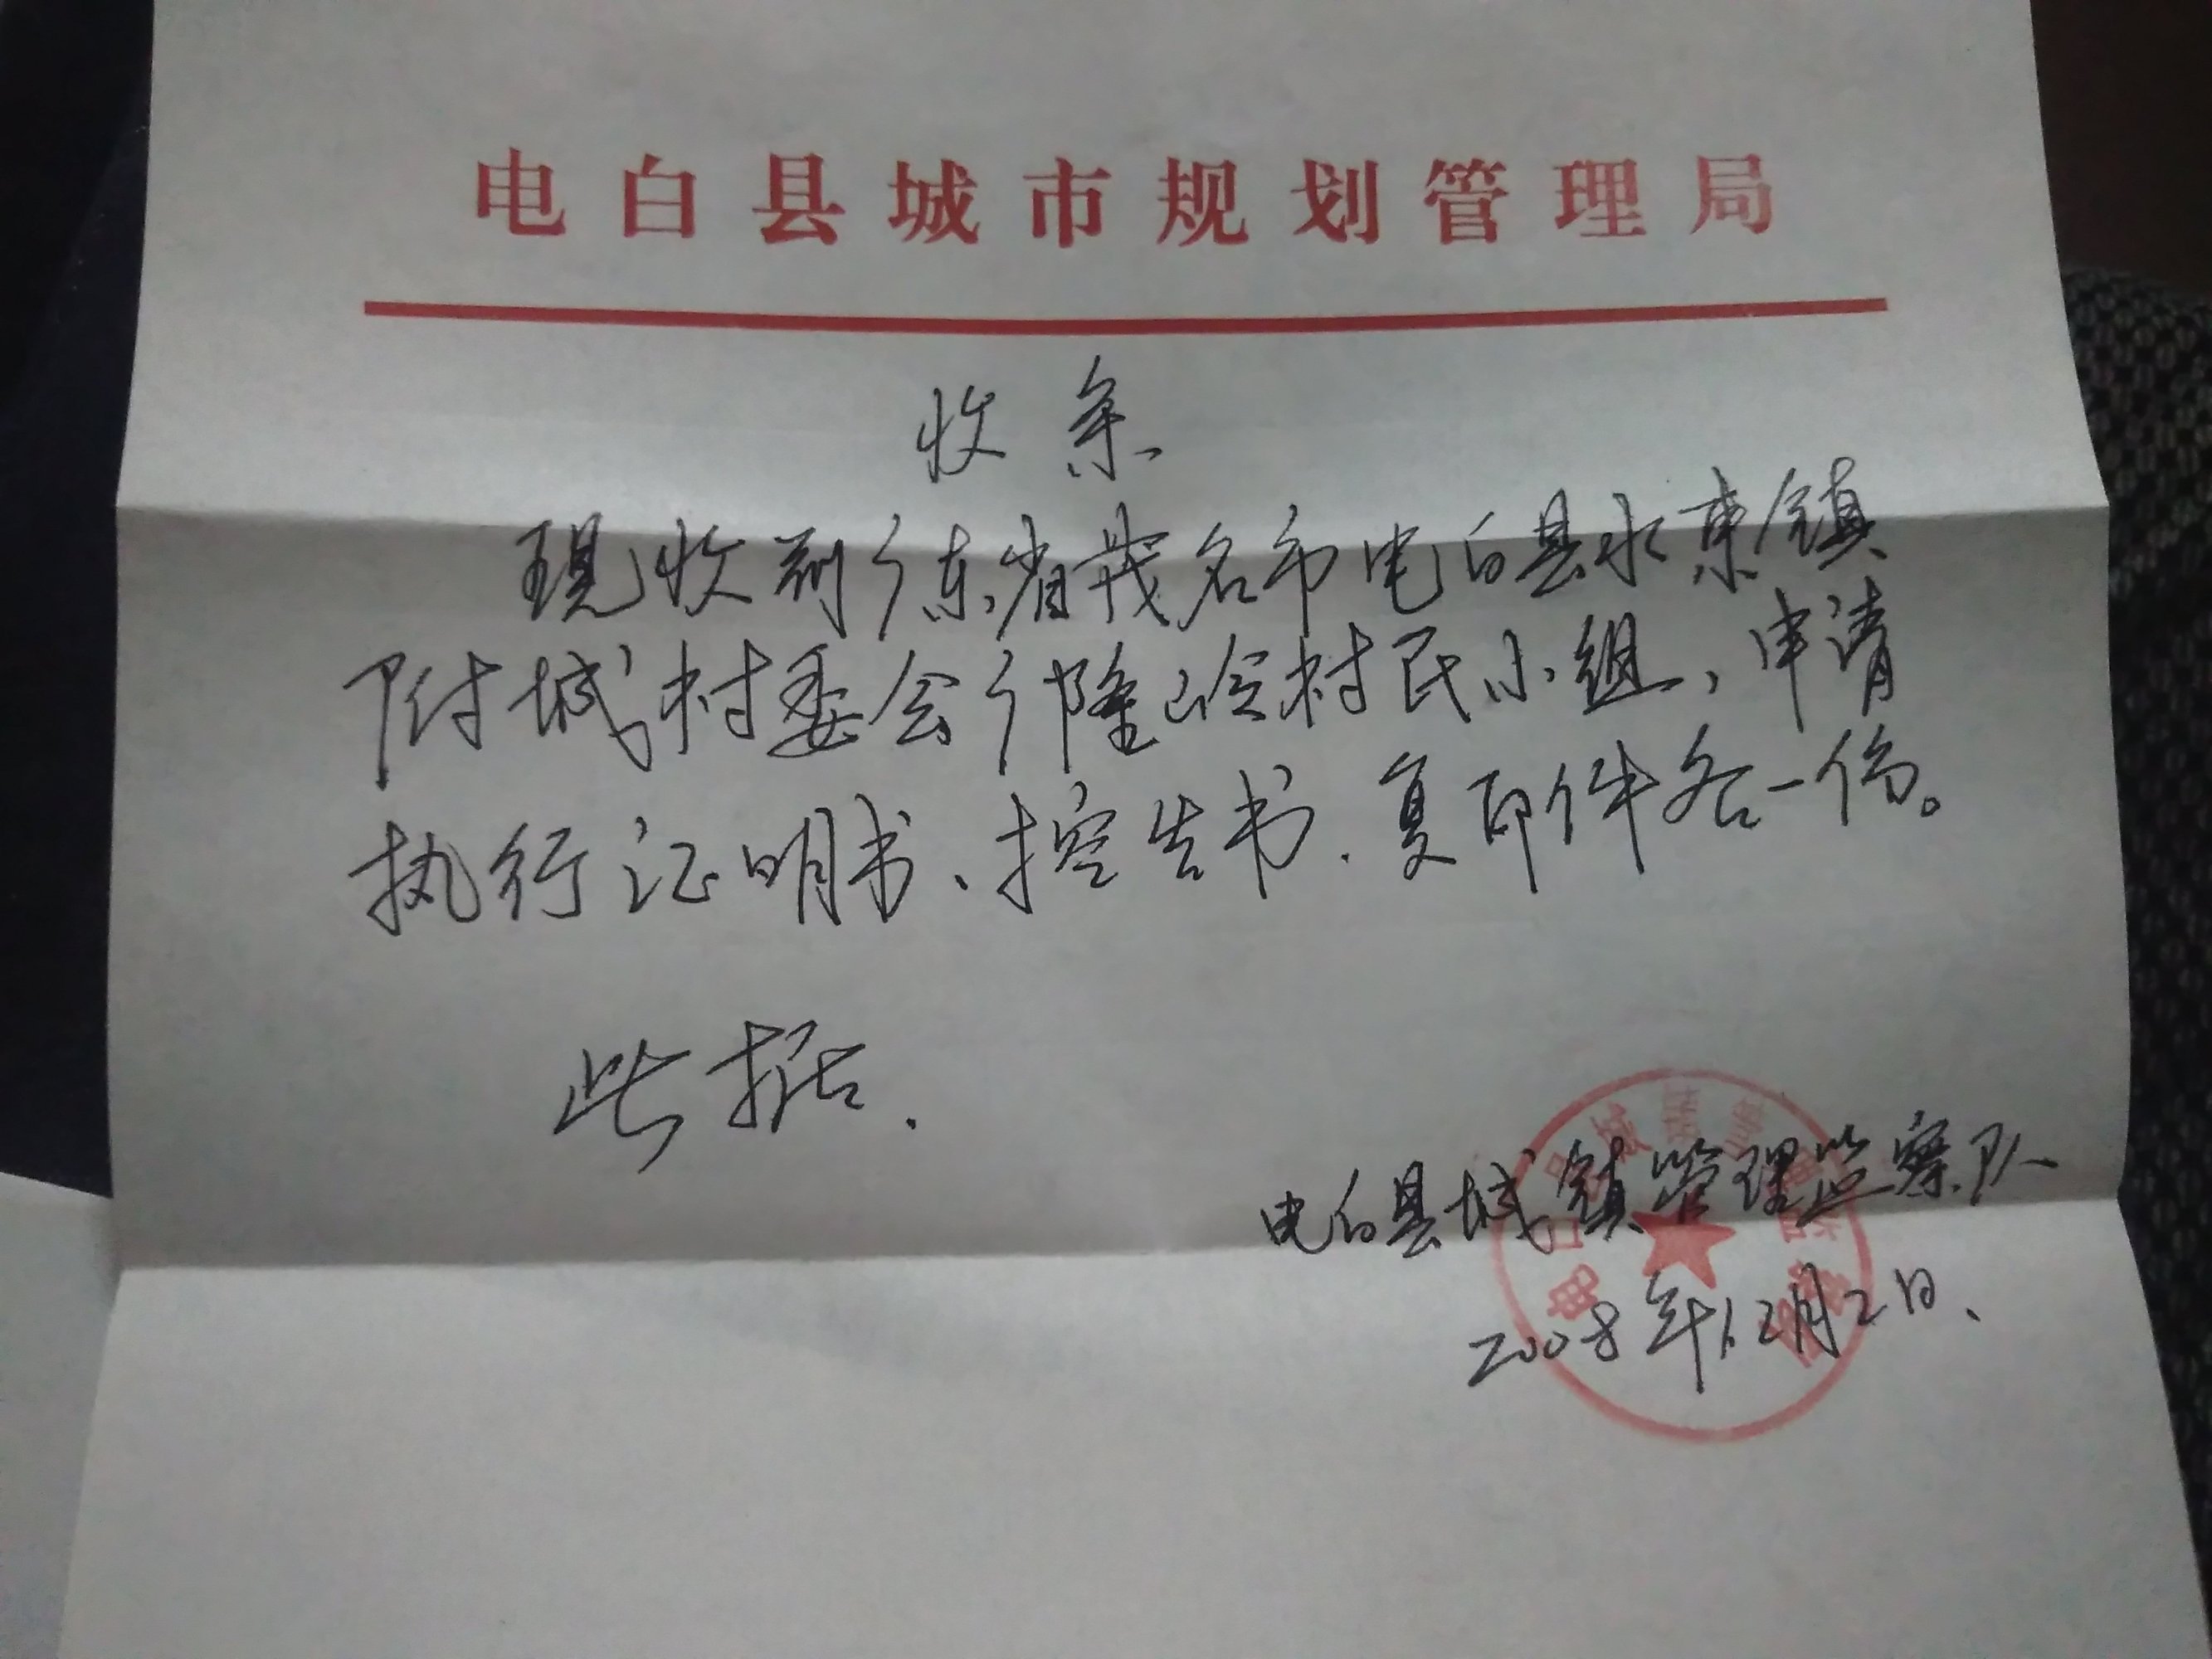 电白县城市规划管理局
收条
现收到广东省茂名市电白县水东镇
附城村委会广隆岭村民小组、申请
执行证明书、控告书、复印件各一份。
此据.
电白县城镇管理监察队
2008年12月2日、